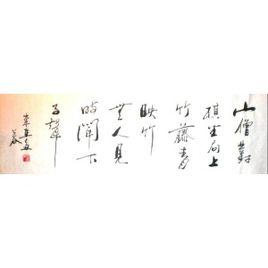 山僧對
棋坐局上
竹蔭青
映竹
無人見
時聞下
子聲